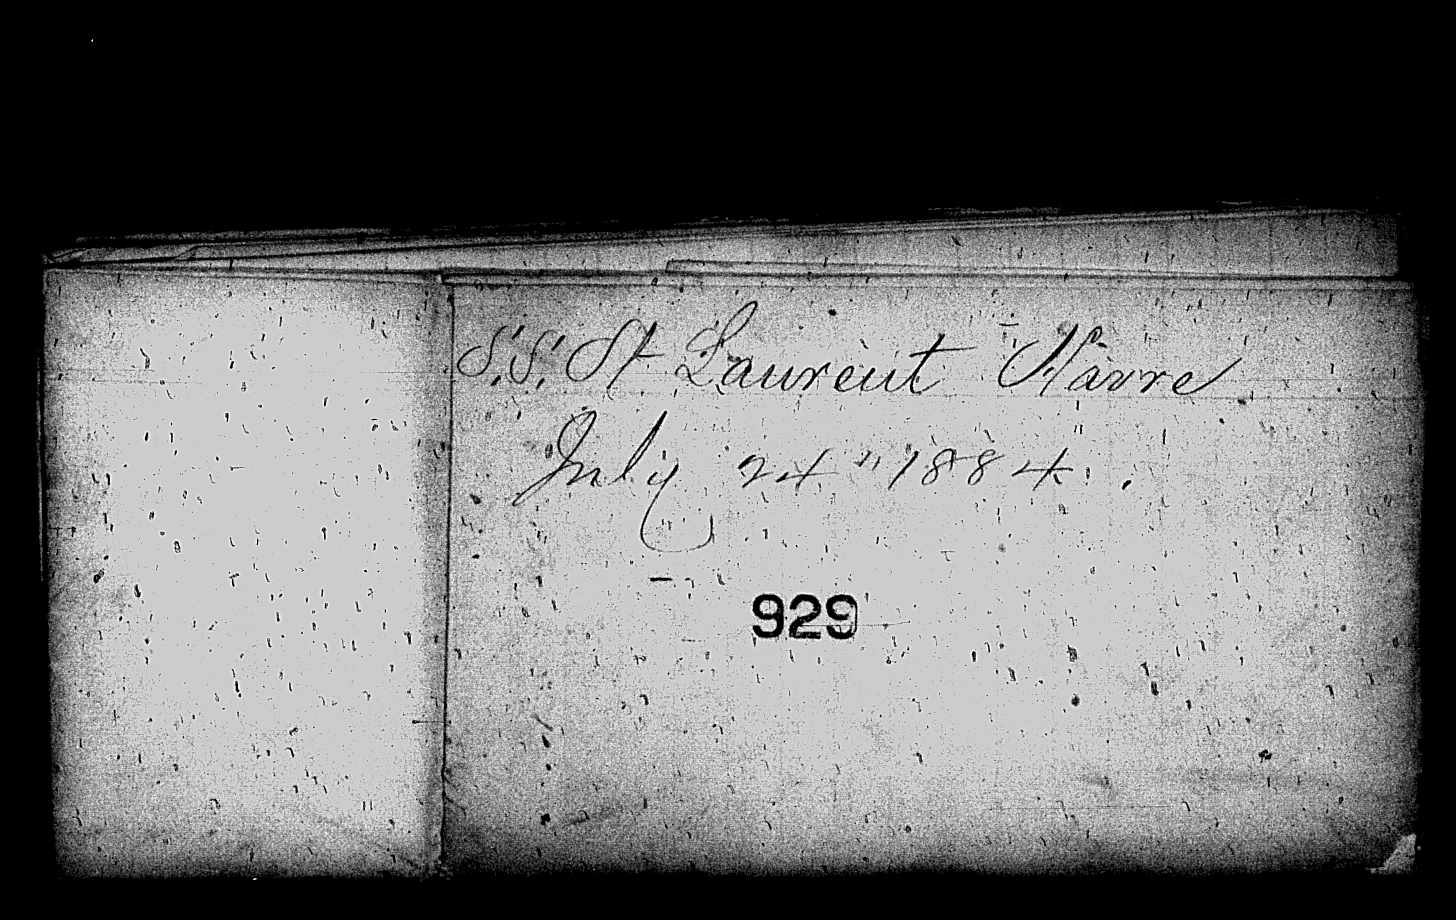 S.S. St Laurent Havre
July 24" 1884.
929